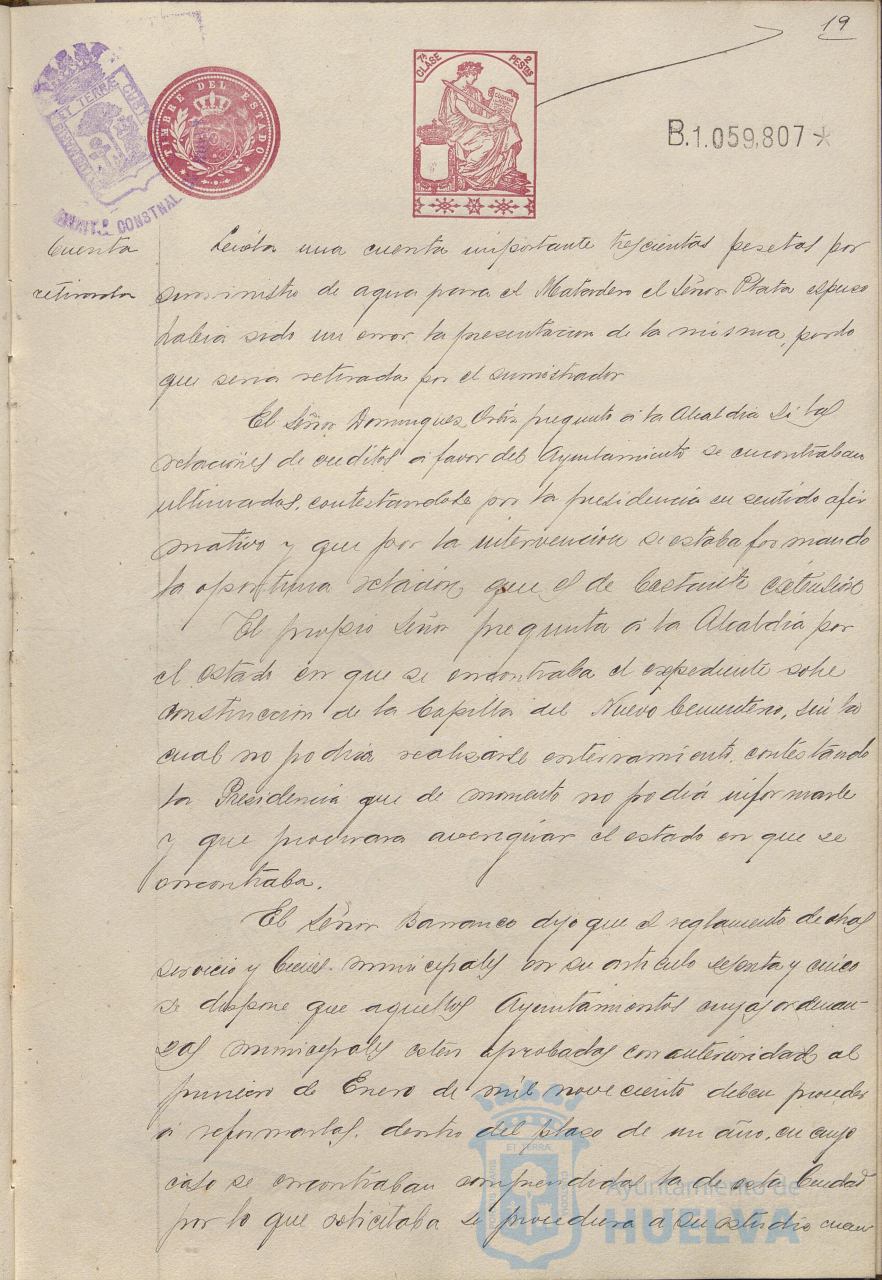 19
7ª CLASE
2 PESTAS
TIMBRE DEL ESTADO
ET TERRÆ CUST
AYUNT.º CONSTNAL
B.1.059,807 *
Cuenta
retirada
Leida una cuenta importante trescientas pesetas por
suministro de agua para el Matadero el Señor Plata espuso
habia sido un error la presentacion de la misma, por lo
que seria retirada por el sumistrador
El Señor Domingues Ortiz pregunto á la Alcaldia si las
relaciones de creditos á favor del Ayuntamiento se encontraban
ultimadas, contestandole por la presidencia en sentido afir
mativo y que por la intervención se estaba formando
la oportuna relación que es de bastante extensión
El propio Señor pregunta á la Alcaldia por
el estado en que se encontraba el expediente sobre
construccion de la Capilla del Nuevo Cementerio, sin la
cual no podria realizarse enterramiento, contestando
la Presidencia que de momento no podia informarle
y que procurara averiguar el estado en que se
encontraba.
El Señor Barranco dijo que el reglamento de obras
servicio y bienes municipales en su articulo setenta y cinco
se dispone que aquellos Ayuntamientos cuyas ordenan-
zas municipales esten aprobadas con anterioridad al
primero de Enero de mil novecientos deben proceder
á reformarlas, dentro del plaso de un año, en cuyo
caso se encontraban comprendidas la de esta Ciudad
por lo que solicitaba se procediera a su estudio cuan
Ayuntamiento de
HUELVA